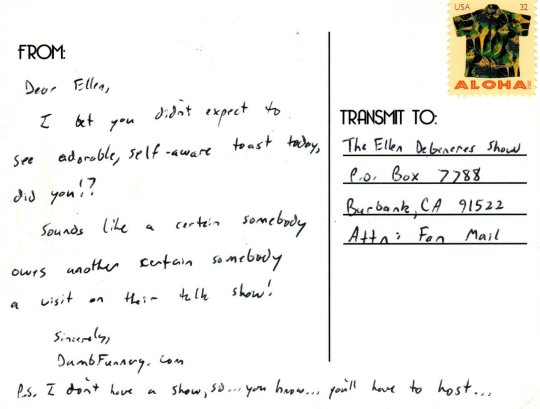 FROM:
Dear Ellen,
I bet you didn't expect to
see adorable, self-aware toast today,
did you!?
Sounds like a certain somebody
owes another certain somebody
a visit on their talk show!
Sincerely,
DumbFunnery.com
P.S. I don't have a show, so... you know... you'll have to host...
USA 32
ALOHA
TRANSMIT TO:
The Ellen Degeneres Show
P.O. Box 7788
Burbank, CA 91522
Attn: Fan Mail